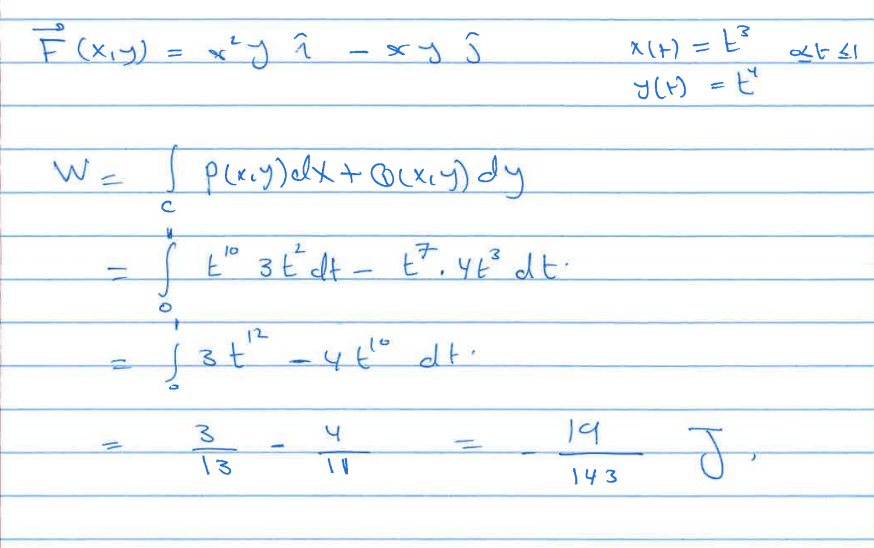 F⃗(x,y) = x²y î − xy ĵ    x(t) = t³    0≤t≤1
y(t) = t⁴
W = ∫_C P(x,y)dx + Q(x,y)dy
= ∫₀¹ t¹⁰ 3t² dt − t⁷ . 4t³ dt.
= ∫₀¹ 3t¹² − 4t¹⁰ dt.
= 3/13 − 4/11 = −19/143 J,